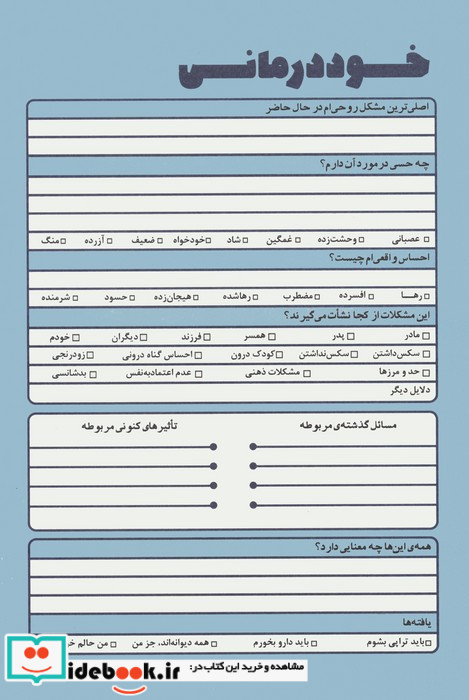 خوددرمانی
اصلی‌ترین مشکل روحی‌ام در حال حاضر
چه حسی در مورد آن دارم؟
عصبانی وحشت‌زده غمگین شاد خودخواه ضعیف آزرده منگ
احساس واقعی‌ام چیست؟
رها افسرده مضطرب رهاشده هیجان‌زده حسود شرمنده
این مشکلات از کجا نشأت می‌گیرند؟
مادر پدر همسر فرزند دیگران خودم
سکس‌داشتن سکس‌نداشتن کودک درون احساس گناه درونی زودرنجی
حد و مرزها مشکلات ذهنی عدم اعتمادبه‌نفس بدشانسی
دلایل دیگر
مسائل گذشته‌ی مربوطه تأثیرهای کنونی مربوطه
همه‌ی این‌ها چه معنایی دارد؟
یافته‌ها
باید تراپی بشوم باید دارو بخورم همه دیوانه‌اند، جز من من حالم
مشاهده و خرید این کتاب در:
idebook.ir